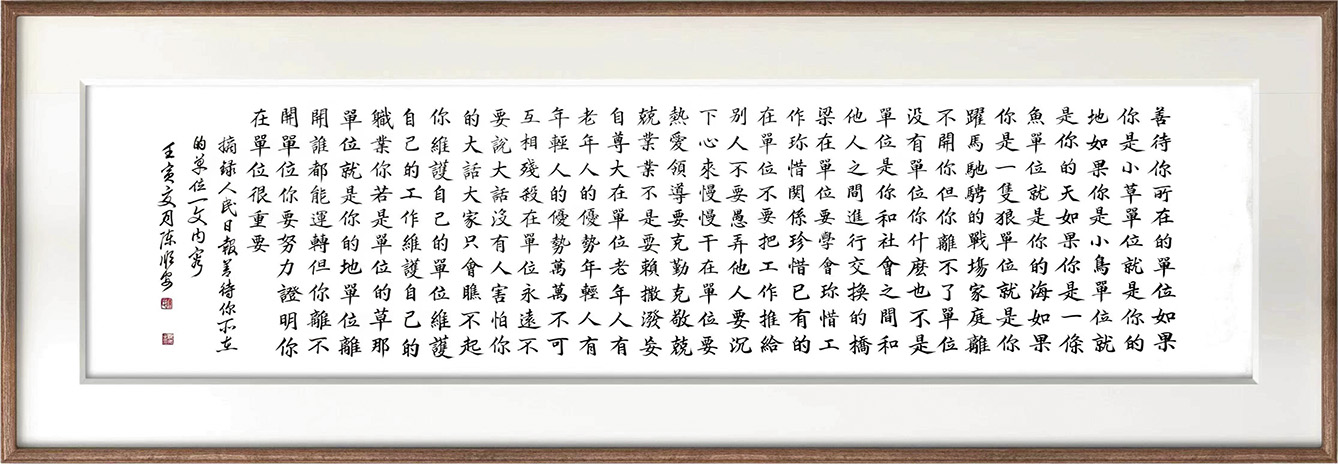 善待你所在的單位如果
你是小草單位就是你的
地如果你是小鳥單位就
是你的天如果你是一條
魚單位就是你的海如果
你是一隻狼單位就是你
躍馬馳騁的戰場家庭離
不開你但你離不了單位
没有單位你什麼也不是
單位是你和社會之間和
他人之間進行交換的橋
梁在單位要學會珎惜工
作珎惜関係珍惜已有的
在單位不要把工作推給
别人不要愚弄他人要沉
下心來慢慢干在單位要
熱愛領導要克勤克敬兢
兢業業不是要賴撒潑妄
自尊大在單位老年人有
老年人的優勢年輕人有
年輕人的優勢萬萬不可
互相殘殺在單位永遠不
要說大話没有人害怕你
的大話大家只會瞧不起
你維護自己的單位維護
自己的工作維護自己的
職業你若是單位的草那
單位就是你的地單位離
開誰都能運轉但你離不
開單位你要努力證明你
在單位很重要
摘録人民日報善待你所在
的單位一文内容
壬寅夏月陳順安